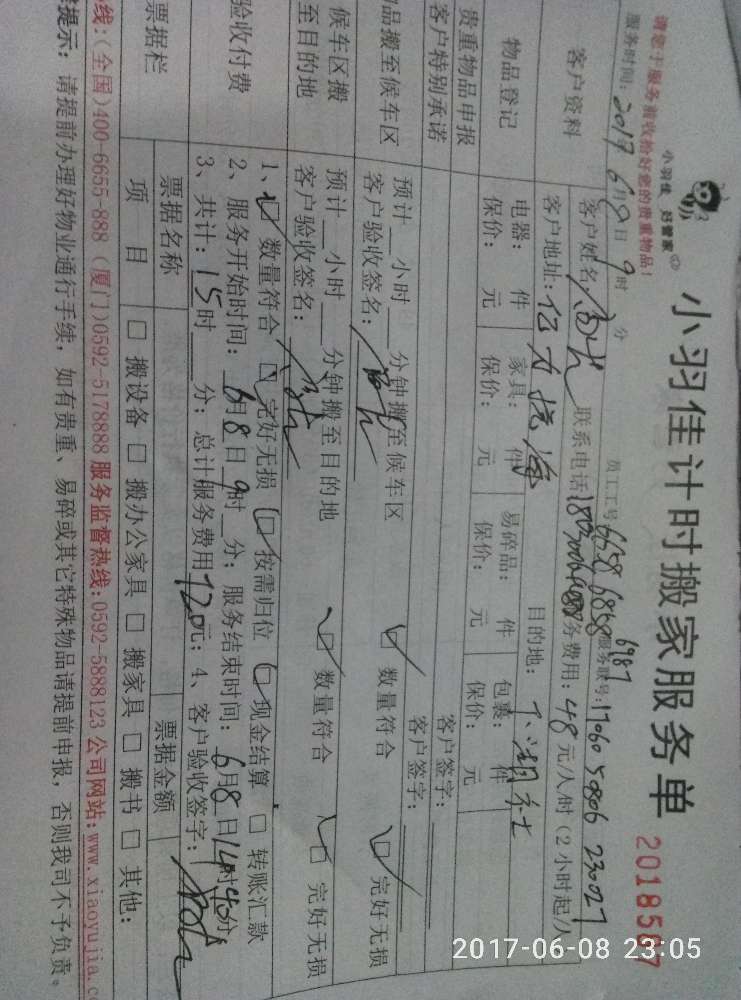 小羽佳 好管家
小羽佳计时搬家服务单
2018567
请您于服务前收拾好您的贵重物品！
服务时间：2017 6月8日 9时 分 员工工号 6658 6858 6987 服务联号：
客户资料
客户姓名 联系电话 服务费用：48元/人/时（2小时起/人
客户地址：亿力 目的地：
物品登记
电器： 件 家具： 件 易碎品： 件 包裹： 件
保价： 元 保价： 元 保价： 元 保价： 元
贵重物品申报 客户签字：
客户特别承诺 客户签字：
品搬至候车区
预计 小时 分钟搬至候车区
客户验收签名： 数量符合 完好无损
候车区搬至目的地
预计 小时 分钟搬至目的地
客户验收签名： 数量符合 完好无损
验收付费
1、 数量符合 完好无损 按需归位 现金结算 转账汇款
2、服务开始时间：6月8日9时 分；服务结束时间：6月8日14时40分
3、共计：15时 分；总计服务费用720元；4、客户验收签字：
票据栏
票据名称 票据金额
项 目 搬设备 搬办公家具 搬家具 搬书 其他：
线：(全国)400-6655-888 (厦门)0592-5178888 服务监督热线:0592-5888123 公司网站:www.xiaoyujia.c
提示：请提前办理好物业通行手续，如有贵重、易碎或其它特殊物品请提前申报，否则我司不予负责。
2017-06-08 23:05